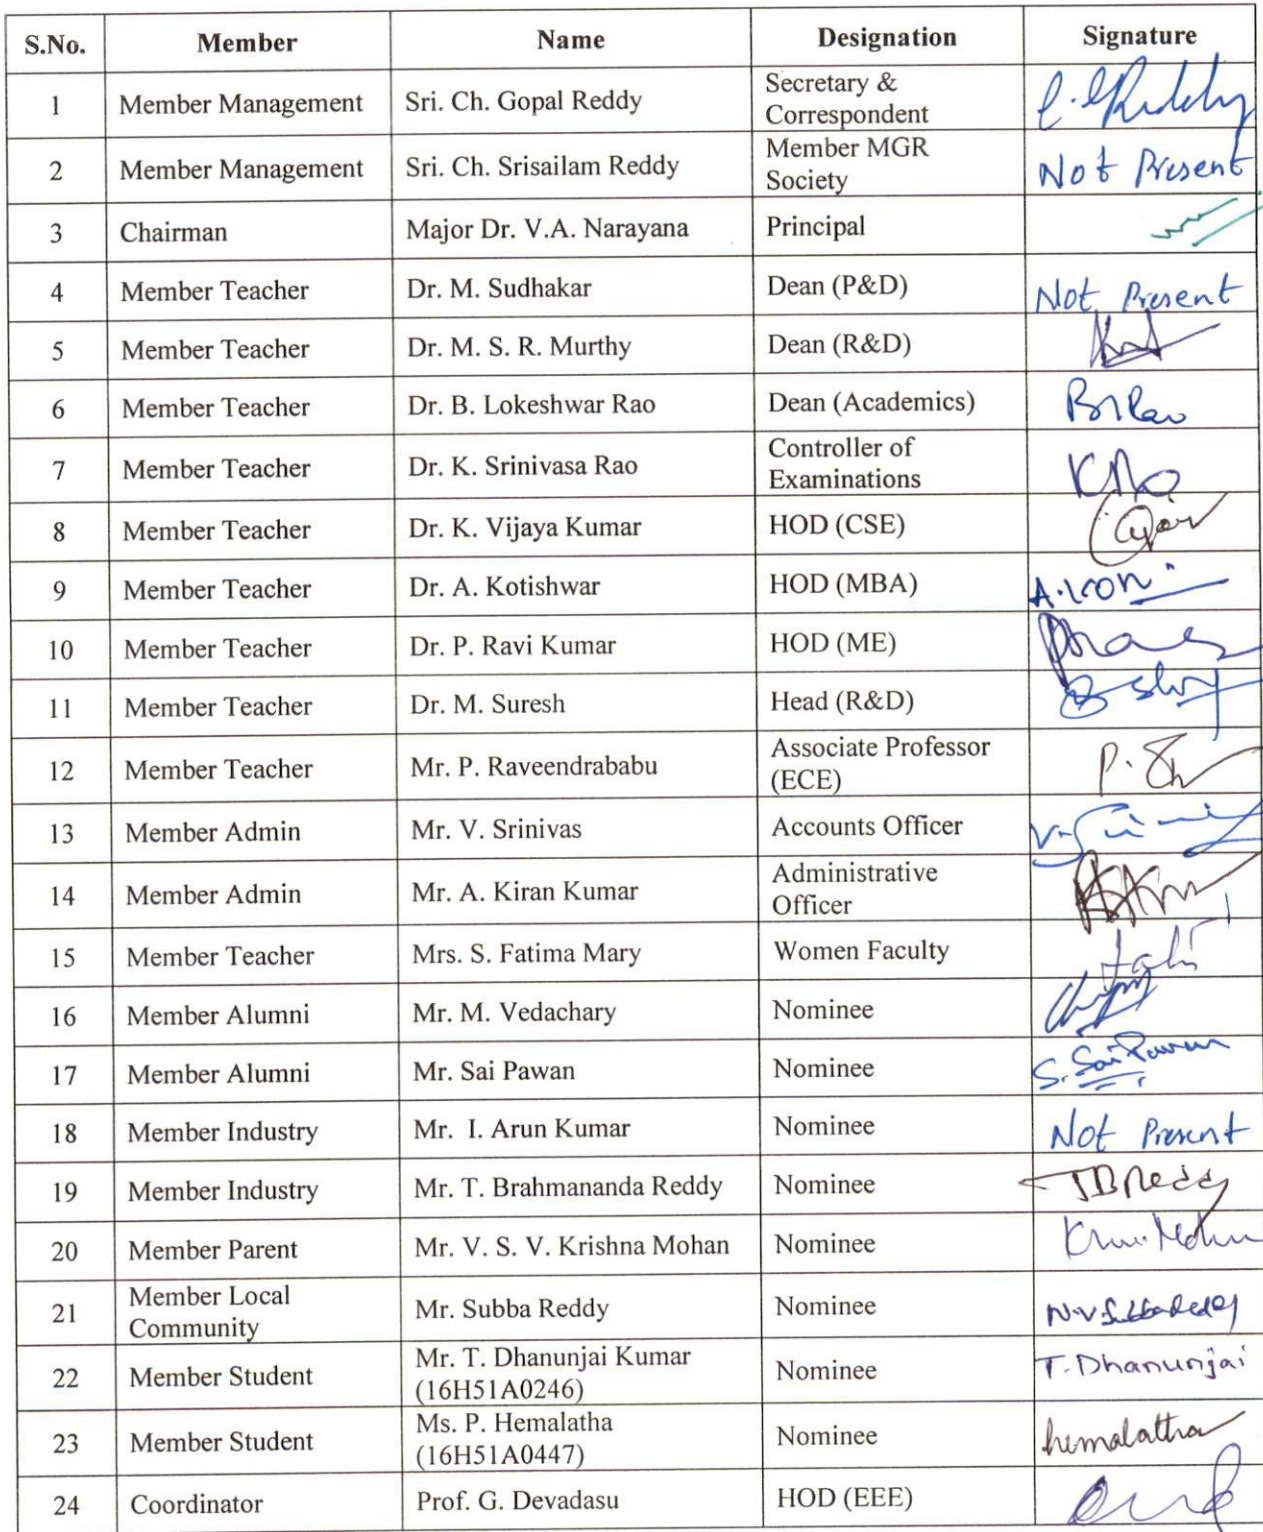 S.No. Member Name Designation Signature
1 Member Management Sri. Ch. Gopal Reddy Secretary &
Correspondent
2 Member Management Sri. Ch. Srisailam Reddy Member MGR
Society Not Present
3 Chairman Major Dr. V.A. Narayana Principal
4 Member Teacher Dr. M. Sudhakar Dean (P&D) Not Present
5 Member Teacher Dr. M. S. R. Murthy Dean (R&D)
6 Member Teacher Dr. B. Lokeshwar Rao Dean (Academics)
7 Member Teacher Dr. K. Srinivasa Rao Controller of
Examinations
8 Member Teacher Dr. K. Vijaya Kumar HOD (CSE)
9 Member Teacher Dr. A. Kotishwar HOD (MBA)
10 Member Teacher Dr. P. Ravi Kumar HOD (ME)
11 Member Teacher Dr. M. Suresh Head (R&D)
12 Member Teacher Mr. P. Raveendrababu Associate Professor
(ECE)
13 Member Admin Mr. V. Srinivas Accounts Officer
14 Member Admin Mr. A. Kiran Kumar Administrative
Officer
15 Member Teacher Mrs. S. Fatima Mary Women Faculty
16 Member Alumni Mr. M. Vedachary Nominee
17 Member Alumni Mr. Sai Pawan Nominee S. Sai Pawan
18 Member Industry Mr. I. Arun Kumar Nominee Not Present
19 Member Industry Mr. T. Brahmananda Reddy Nominee
20 Member Parent Mr. V. S. V. Krishna Mohan Nominee
21 Member Local
Community Mr. Subba Reddy Nominee
22 Member Student Mr. T. Dhanunjai Kumar
(16H51A0246) Nominee T. Dhanunjai
23 Member Student Ms. P. Hemalatha
(16H51A0447) Nominee hemalatha
24 Coordinator Prof. G. Devadasu HOD (EEE)